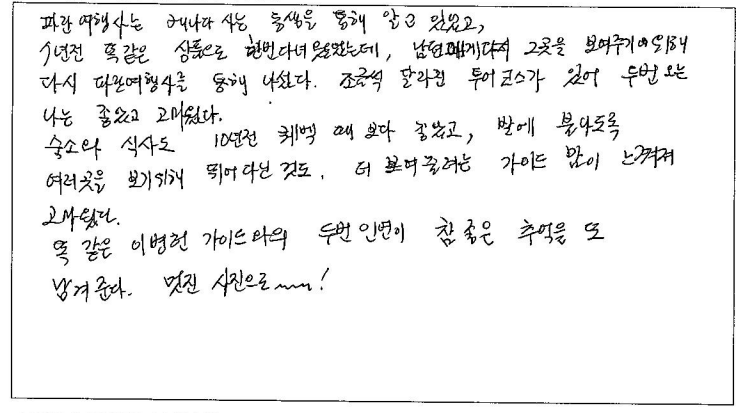 파란여행사는 캐나다 사는 동생을 통해 알고 있었고,
년전 똑같은 상품으로 한번다녀 왔었는데, 남편에게다시 그곳을 보여주기위해
다시 파란여행사를 통해 나섰다. 조금씩 달라진 투어코스가 있어 두번 오는
나는 좋았고 고마웠다.
숙소와 식사도 10년전 퀘벡 때 보다 좋았고, 발에 불나도록
여러곳을 보기위해 뛰어다닌 것도, 더 보여줄려는 가이드 맘이 느껴져
고마웠다.
똑 같은 이병헌 가이드와의 두번 인연이 참 좋은 추억을 또
남겨 준다. 멋진 사진으로~~!